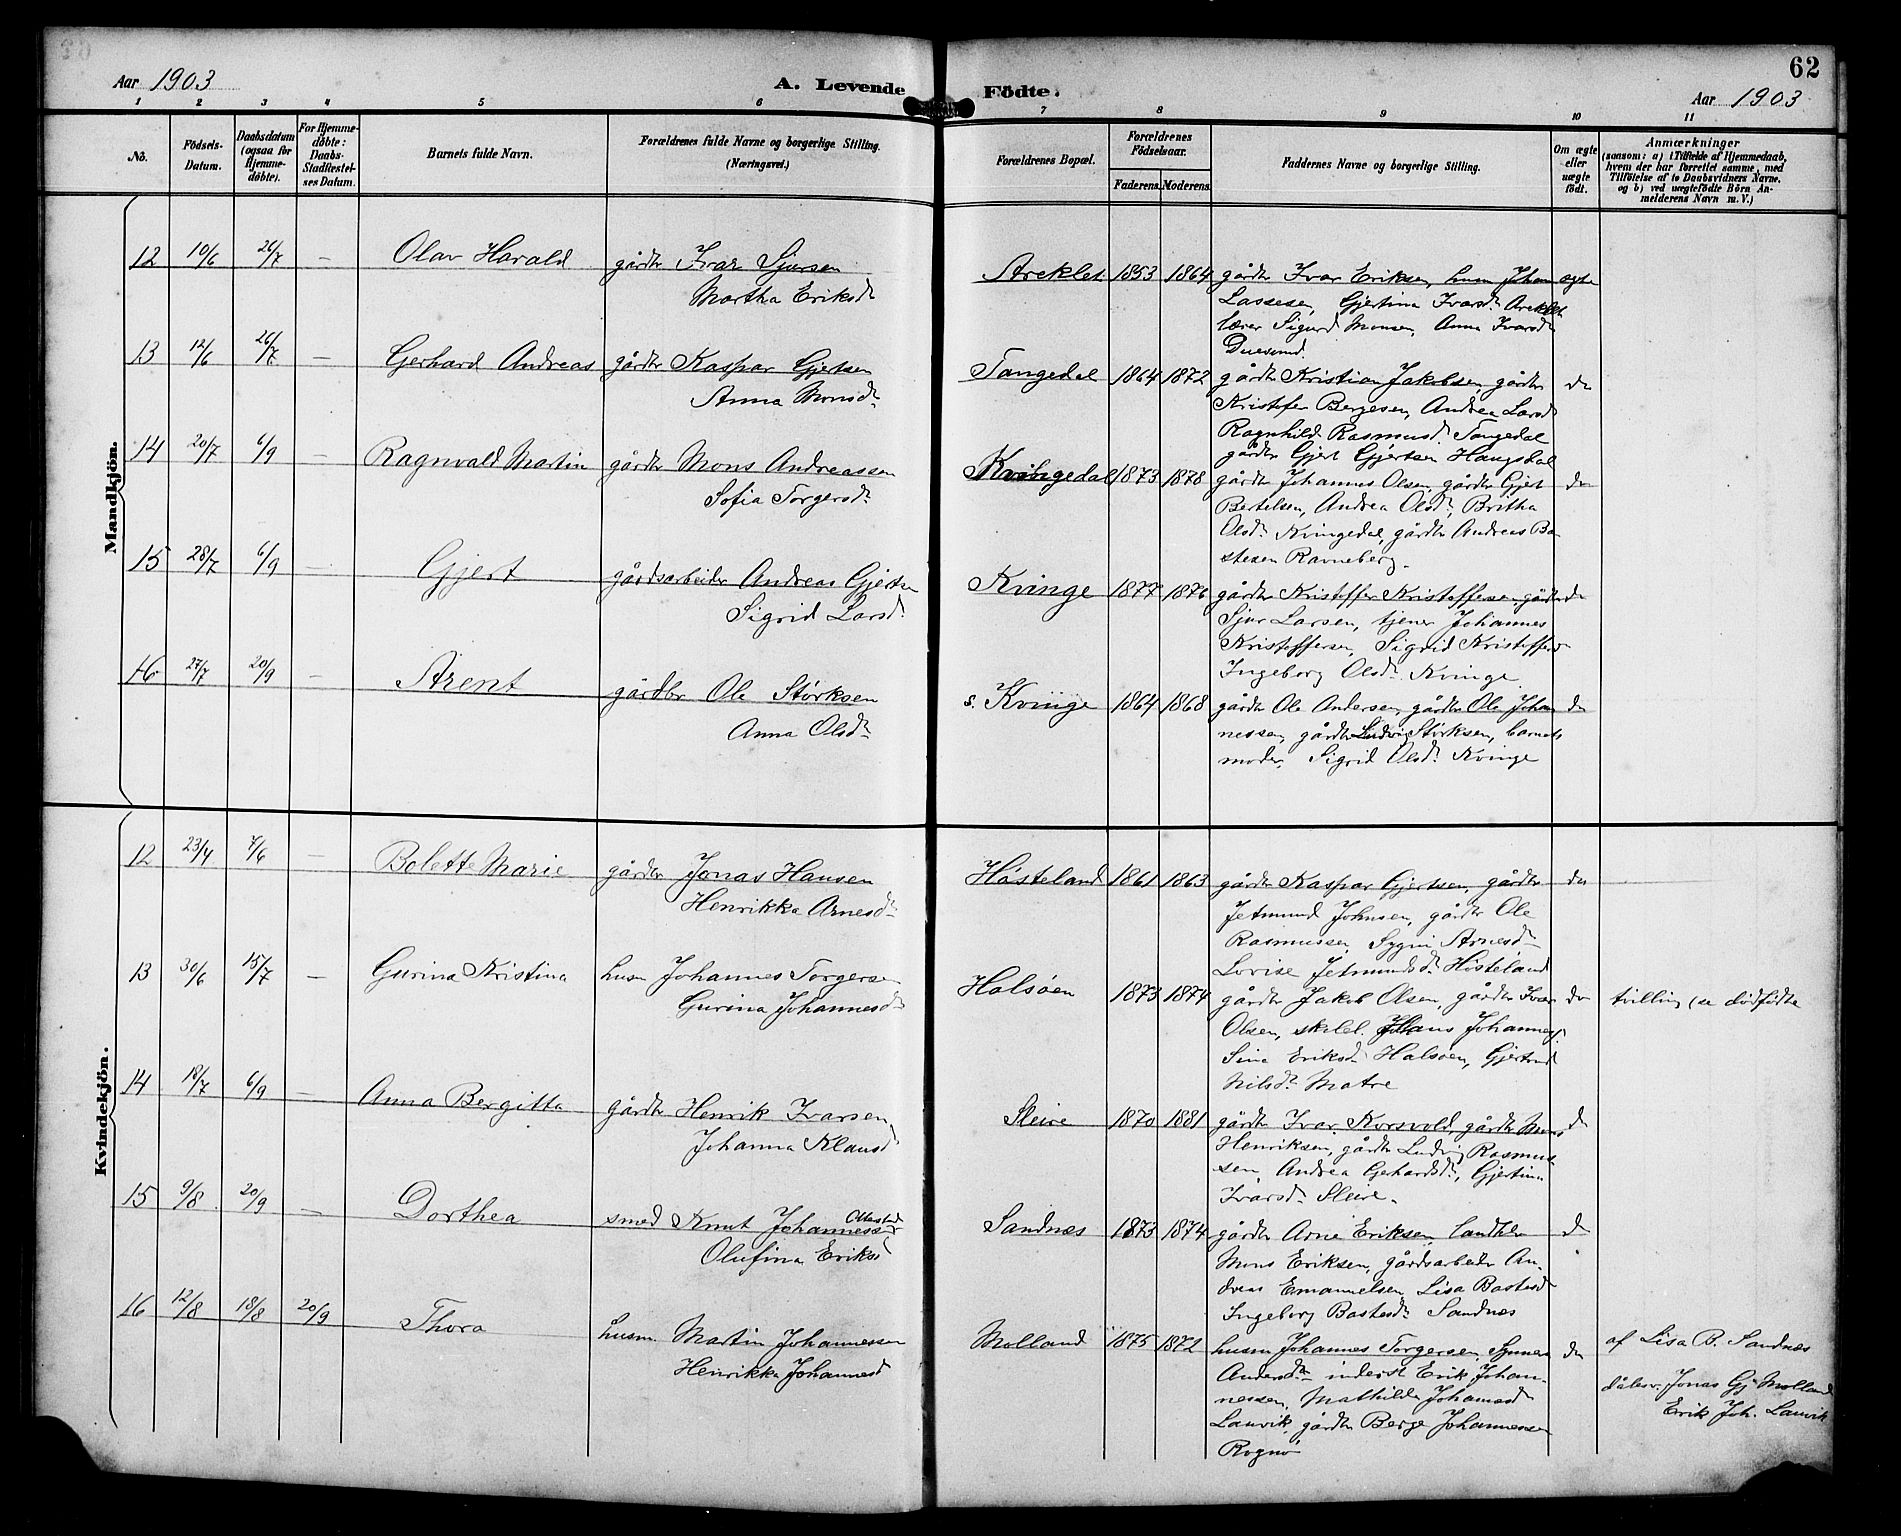 62
Aar 1903
A. Levende Födte.
Aar 1903
1 2 3 4 5 6 7 8 9 10 11
No.
Födsels-
Datum.
Daabsdatum
(ogsaa for
Hjemme-
döbte).
For Hjemme-
döbte:
Daabs-
Stadfestel-
ses Datum.
Barnets fulde Navn.
Forældrenes fulde Navne og borgerlige Stilling.
(Næringsvei.)
Forældrenes Bopæl.
Forældrenes
Födselsaar.
Faderens.
Moderens.
Faddernes Navne og borgerlige Stilling.
Om ægte
eller
uægte
födt.
Anmærkninger
(saasom: a) i Tilfælde af Hjemmedaab,
hvem der har forrettet samme, med
Tilföielse af to Daabsvidners Navne,
og b) ved uægtefödte Börn An-
melderens Navn m. V.)
Mandkjön.
12 10/6 26/7 — Olav Harald gårdbr Ivar Sjursen
Martha Eriksdr
Areklet 1853 1864 gårdbr Ivar Eriksen, husm Johan ægte
Lassesen, Gjertina Ivarsdr Areklet
lærer Sigurd Monsen, Anna Ivarsdr
Duesund.
13 12/6 26/7 — Gerhard Andreas gårdbr Kaspar Gjertsen
Anna Monsdr
Tangedal 1864 1872 gårdbr Kristian Jakobsen, gårdbr do
Kristofer Bergesen, Andrea Larsd
Ragnhild Rasmusd. Tangedal
gårdbr Gjert Gjertsen Haugsdal
14 20/7 6/9 — Ragnvald Martin gårdbr Mons Andreassen
Sofia Torgersdr
Kvingedal 1873 1878 gårdbr Johannes Olsen, gårdbr Gjert do
Bertelsen, Andrea Olsdr, Britha
Olsdr Kvingedal, gårdbr Andreas Ba-
stesen Ravneberg.
15 28/7 6/9 — Gjert gårdsarbeider Andreas Gjertsen
Sigrid Larsdr
Kvinge 1877 1876 gårdbr Kristoffer Kristoffersen, gårdbr do
Sjur Larsen, tjener Johannes
Kristoffersen, Sigrid Kristoffersd
Ingeborg Olsdr Kvinge
16 27/7 20/9 — Arent gårdbr Ole Størksen
Anna Olsdr
s. Kvinge 1864 1868 gårdbr Ole Andersen, gårdbr Ole Johan do
nessen, gårdbr Ludvig Størksen, barnets
moder, Sigrid Olsdr Kvinge
Kvindekjön.
12 23/4 7/6 — Bolette Marie gårdbr Jonas Hansen
Henrikka Arnesd
Hősteland 1861 1863 gårdbr Kaspar Gjertsen, gårdbr do
Jetmund Johnsen, gårdbr Ole
Rasmussen, Sygni Arnesd
Lovise Jetmundsdr Høsteland
13 30/6 15/7 — Gurina Kristina husm Johannes Torgersen
Gurina Johannesd
Halsøen 1873 1874 gårdbr Jakob Olsen, gårdbr Ivar do tvilling (se dødfødte
Olsen, skolel. Klaus Johannes.
Sina Eriksdr Halsøen, Gjertrud
Nilsdr Matre
14 18/7 6/9 — Anna Bergitta gårdbr Henrik Ivarsen
Johanna Klausd
Sleire 1870 1881 gårdbr Ivar Korsvold, gårdbr Mons do
Henriksen, gårdbr Ludvig Rasmus-
sen, Andrea Gerhardsdr, Gjertina
Ivarsdr Sleire.
15 9/8 20/9 — Dorthea smed Knut Johannessen Otterstad
Olufina Eriksd
Sandnæs 1873 1874 gårdbr Arne Eriksen, landhdl do
Mons Eriksen, gårdsarbeider An-
dreas Emanuelsen, Lisa Bastesd
Ingeborg Bastesdr Sandnæs
16 12/8 18/8 20/9 Thora husm. Martin Johannessen
Henrikka Johannesd
Molland 1875 1872 husm Johannes Torgersen, Synneva do af Lisa B. Sandnæs
Andersdr inderst Erik Johan-
nessen, Mathilde Johannesd dåbsv. Jonas Gj. Molland
Lauvik, gårdbr Berge Johannessen Erik Joh. Lauvik
Rognø